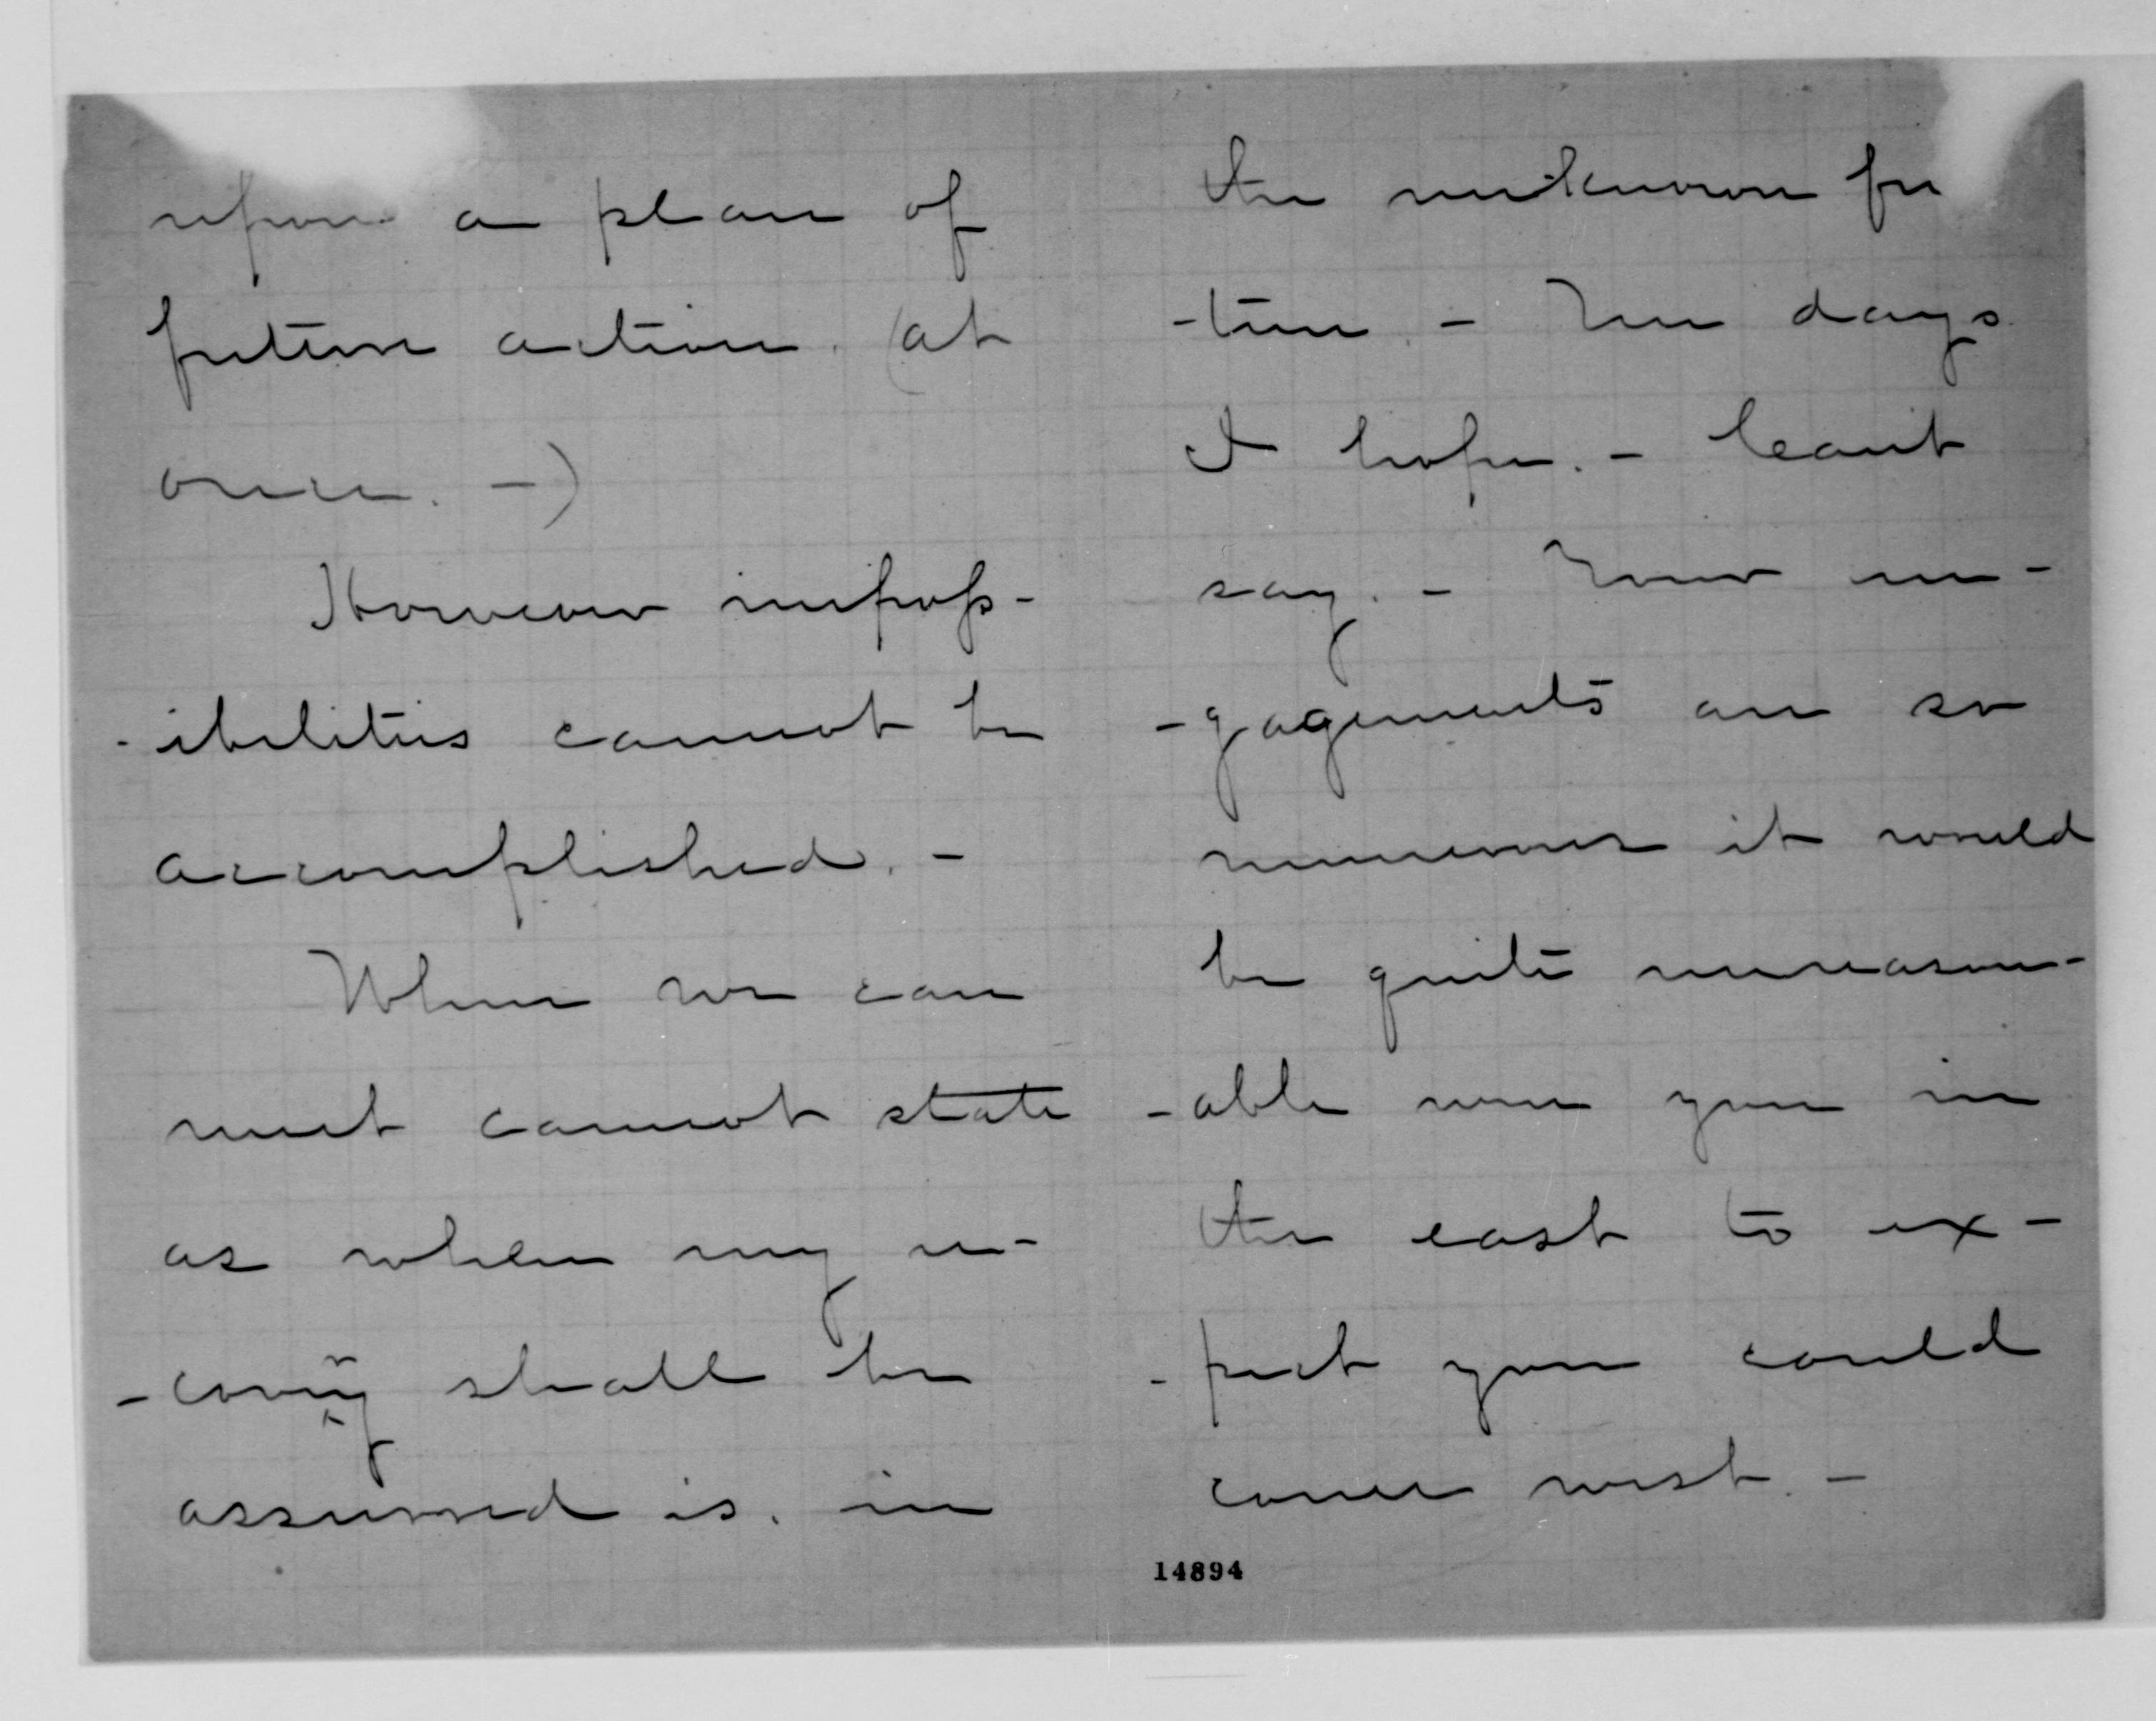 upon a plan of
future action. (at
once. -)
However imposs-
-ibilities cannot be
accomplished. -
When we can
meet cannot state
as when my re-
-covery shall be
assumed is. in
the unknown fu
-ture. - Ten days
I hope. - Can't
say. - Your en-
-gagements are so
numerous it would
be quite unreason-
-able were you in
the east to ex-
-pect you could
come west. -
14894